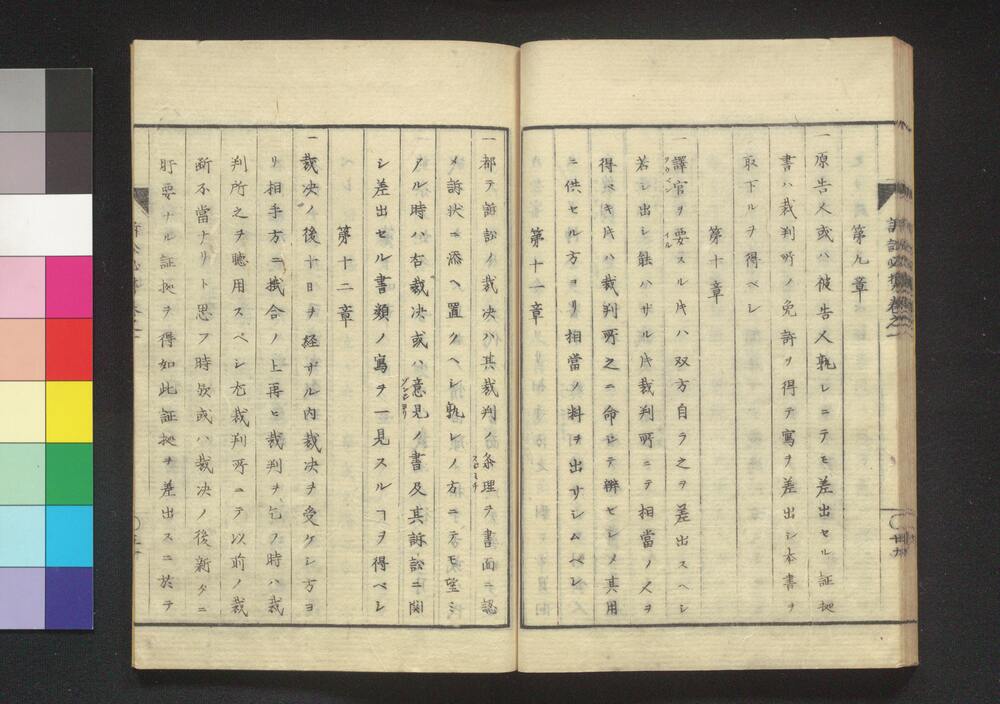 第九章
一原告人或ハ被告人孰レニテモ差出セル証拠
書ハ裁判所ノ免許ヲ得テ寫ヲ差出シ本書ヲ
取下ルヲ得ベシ
第十章
一譯官ヲ要スル片ハ双方自ラ之ヲ差出スヘシ
若シ出シ能ハサル片裁判所ニテ相當ノ人ヲ
得ベキ片ハ裁判所之ニ命シテ辨セシメ其用
ニ供セル方ヨリ相當ノ料ヲ出サシムベシ
第十一章
一都テ訴訟ノ裁决ハ其裁判ノ条理ヲ書面ニ認
メ訴状ニ添ヘ置クヘシ孰レノ方ニテモ望ミ
アル時ハ右裁决或ハ意見ノ書及其訴訟ニ関
シ差出セル書類ノ寫ヲ一見スルヿヲ得ベシ
第十二章
一裁决ノ後十日ヲ経ザル内裁决ヲ受ケシ方ヨ
リ相手方ニ掛合ノ上再ヒ裁判ヲ乞ノ時ハ裁
判所之ヲ聴用スベシ尤裁判所ニテ以前ノ裁
断不當ナリト思フ時欤或ハ裁决ノ後新タニ
肝要ナル証拠ヲ得如此証拠ヲ差出スニ於テ